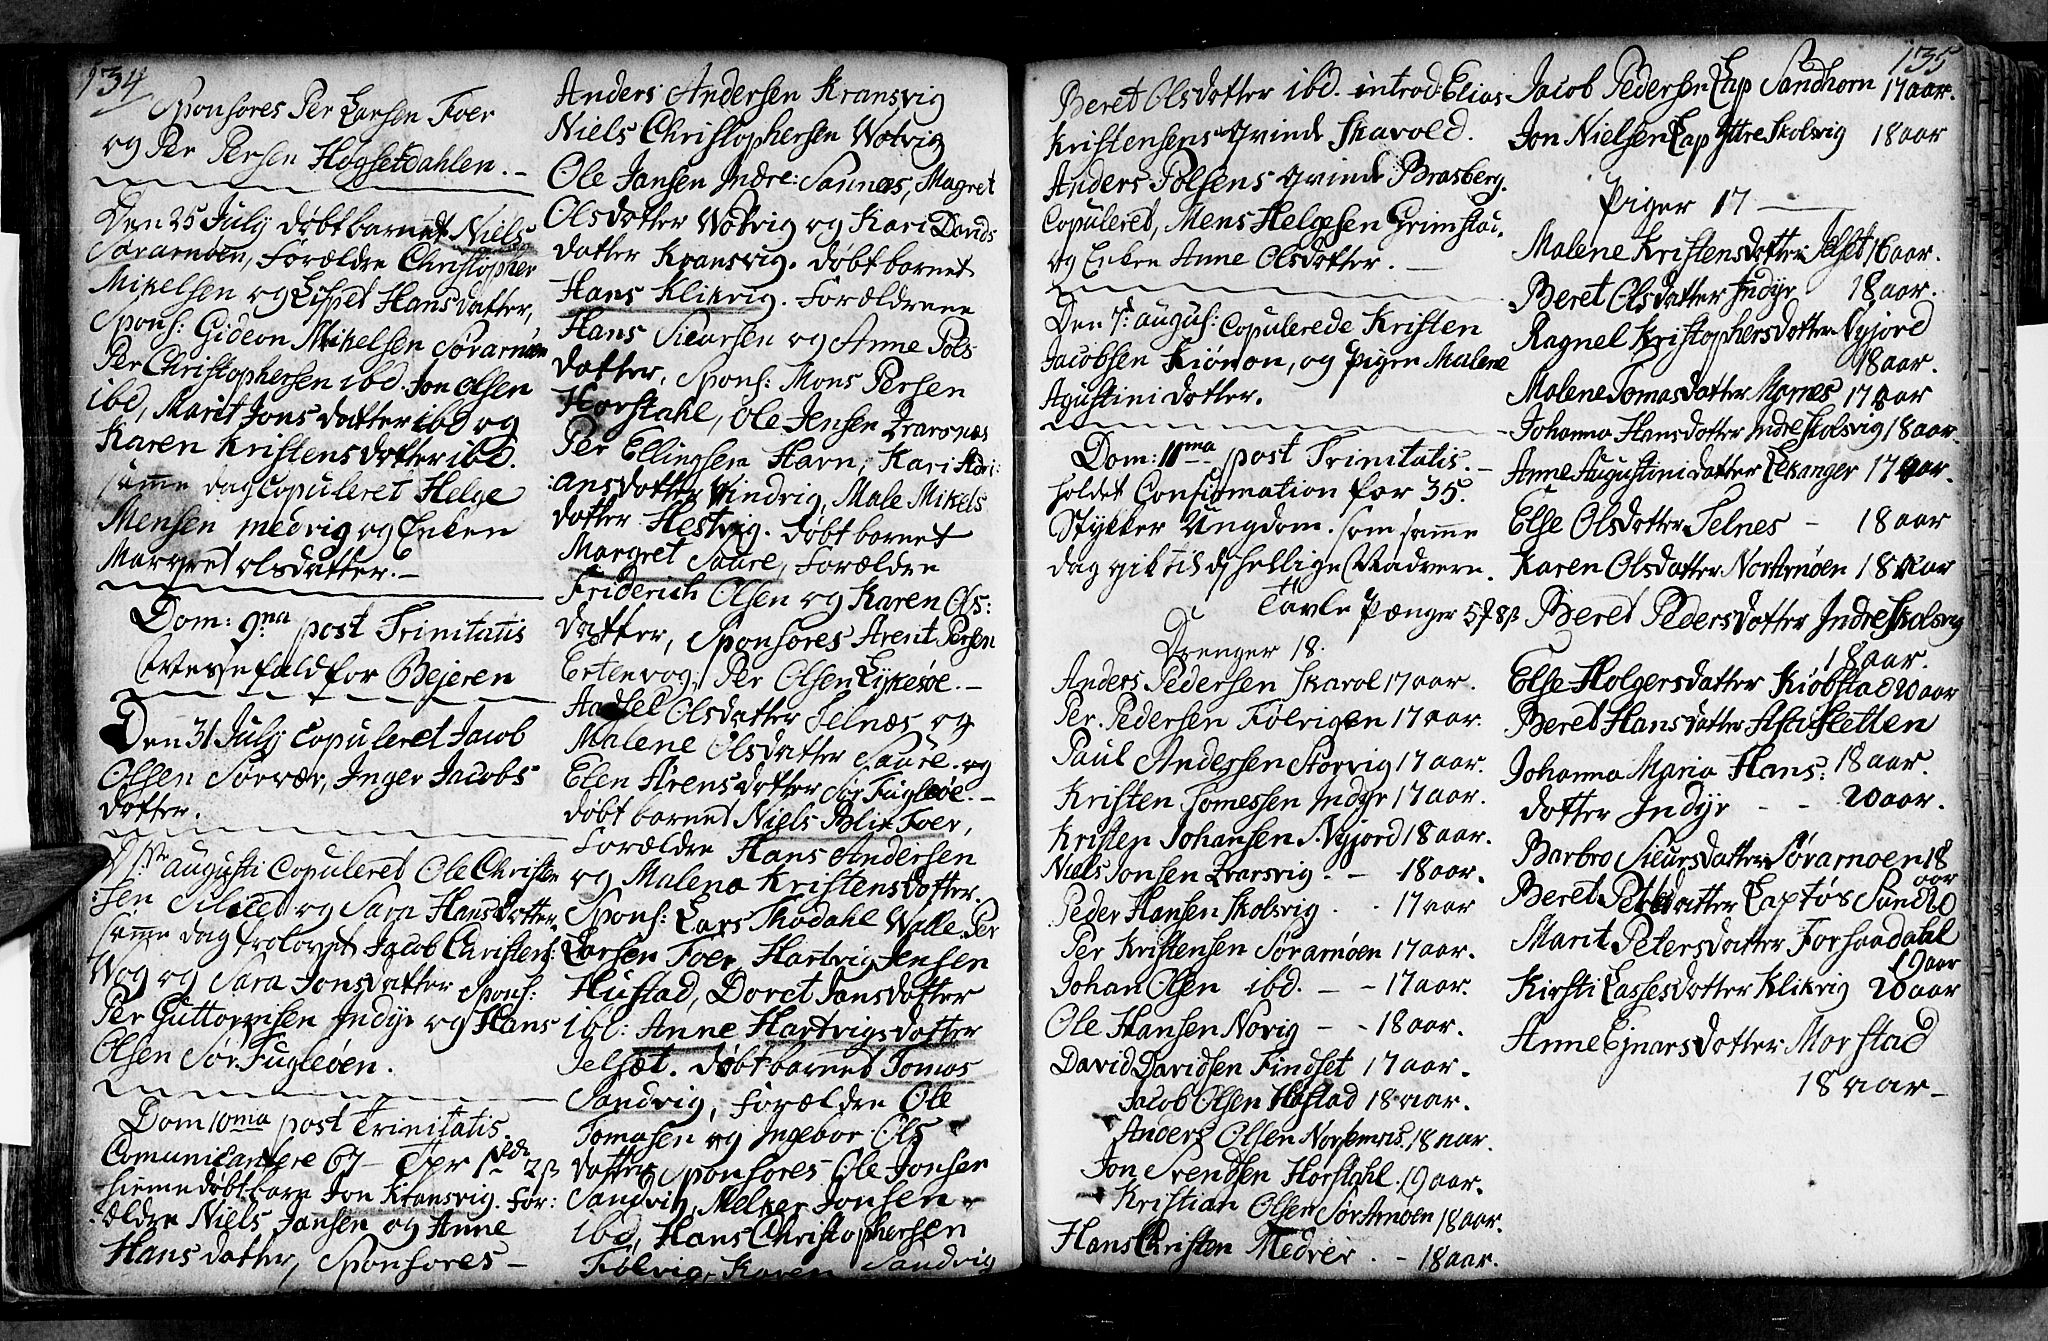 134
Sponsores Per Larsen Foer
og Per Persen Høgsetdahlen.
Den 25 July døbt barnet Niels
Sørarnøen, Forældre Christopher
Mikelsen og Lispet Hansdatter,
Spons: Gideon Mikelsen Sørarnøen
Per Christophersen ibd. Jon Olsen
ibd, Marit Jonsdatter ibd og
Karen Kristensdotter ibd.
samme dag Copuleret Helge
Mensen medvig og Enken
Margret olsdatter.
Dom: 9na post Trinitatis
Messefald for Bejeren
Den 31 July Copuleret Jacob
Olsen Sørvær, Inger Jacobs
dotter.
augusti Copuleret Ole Christen
:sen og Sara Hansdotter.
samme dag trolovet Jacob Christens:
Wog og Sara Jonsdatter Spons:
Per Guttormsen Indyr og Hans
Olsen Sør. Fugløen.
Dom 10ma post Trinitatis.
Comunicantere 67
hieme døbt barn Jon Kransvig. For:
ældre Niels Jansen og Anne
Hans datter, Sponsores
Anders Andersen Kransvig
Niels Christophersen Wotvig
Ole Jansen Indre: Saunæs, Magret
Olsdotter Wotvig og Kari Davids
datter Kransvig. døbt barnet
Hans Klikvig. Forældrene
Hans Sieursen og Anne Pols
datter, Spons: Mons Persen
Horstahl, Ole Jensen
Per Ellingsen Havn, Kari Adri:
:ansdotter Vindvig, Male Mikels
dotter Hestvig. døbt barnet
Margret Saure, Forældre
Friderich Olsen og Karen Ols:
datter, Sponsores Arent Persen
Ertenvog, Per Olsen Lykesøe.
Olsdatter Selnæs og
Malene Olsdatter Saure og
Elen Arensdotter Sør Fugløe.
døbt barnet Niels Blix Foer,
Forældre Hans Andersen
og Malena Kristensdotter.
Spons: Lars Skodahl Per
Larsen Foer, Hartvig Jensen
Hustad, Doret Jansdotter
ibd: Anne Hartvigsdotter
Jelsæt. døbt barnet Tomas
Sandvig, Forældre Ole
Tomasen og Ingebor Ols
datter Sponsores Ole Jonsen
Sandvig, Melker Jonsen
ibd, Hans Christophersen
Følvig, Karen Sandvig
135
Beret Olsdatter ibd. introd: Elias
Kristensens Qvinde Skavold.
Anders Polsens Qvinde Brasberg.
Copuleret, Mens Helgesen Grimstad.
og Enken Anne Olsdotter.
Den 7d: augus: Copulerede Kristen
Jacobsen og Pigen Malene
Agustini dotter.
Dom: 11ma post Trinitatis.
holdet Confirmation for 35.
Stykker Ungdom. som samme
dag gik til d: hellige Nadvere.
Tavle Pænger
Drenger 18.
Anders Pedersen Skavol 17 aar.
Per. Pedersen Følvigen 17 aar.
Paul Andersen Storvig 17 aar.
Kristen Tomessen Indyr 17 aar.
Kristen Johansen Nygjord 18 aar.
Niels Jonsen Qvarsvig. - 18 aar.
Peder Hansen Skolsvig - 17 aar
Per Kristensen Sørarnøen 17 aar.
Johan Olsen ibd. - - 17 aar.
Ole Hansen Novig - - 18 aar.
David Davidsen Findset 17 aar.
Jacob Olsen Hustad 18 aar.
Anders Olsen 18 aar.
Jon Svendsen Horstahl. 19 aar.
Kristian Olsen SørArnøen 18 aar.
Hans Christen Medvei - 18 aar.
Jacob Pedersen Lap Sandhorn 17 aar.
Jon Nielsen Lap Yttre Skolsvig 18 aar
Piger 17
Malene Kristensdotter Jelset 16 aar.
Beret Olsdatter Indyr 18 aar.
Ragnel Kristophersdotter Nygjord
18 aar.
Malene Tomasdatter Mornes 17 aar
Johanna Hansdotter Indre Skolsvig 18 aar.
Anne Augustini datter Lekanger 17 aar.
Else Olsdotter Selnes - 18 aar
Karen Olsdatter NorArnøen 18 aar
Beret Pedersdotter Indre Skolsvig
18 aar.
Else Holgersdatter Kiøbstad 20 aar
Beret Hansdotter
18 aar.
Johanna Maria Hans:
dotter Indyr - - 20 aar.
Barbro Sieursdatter Sørarnoen 18
aar
Beret datter 20
Marit Petersdatter Forsaadahl
19 aar
Kirsti Lassesdotter Klikvig 20 aar
Anne Ejnarsdotter Morstad
18 aar